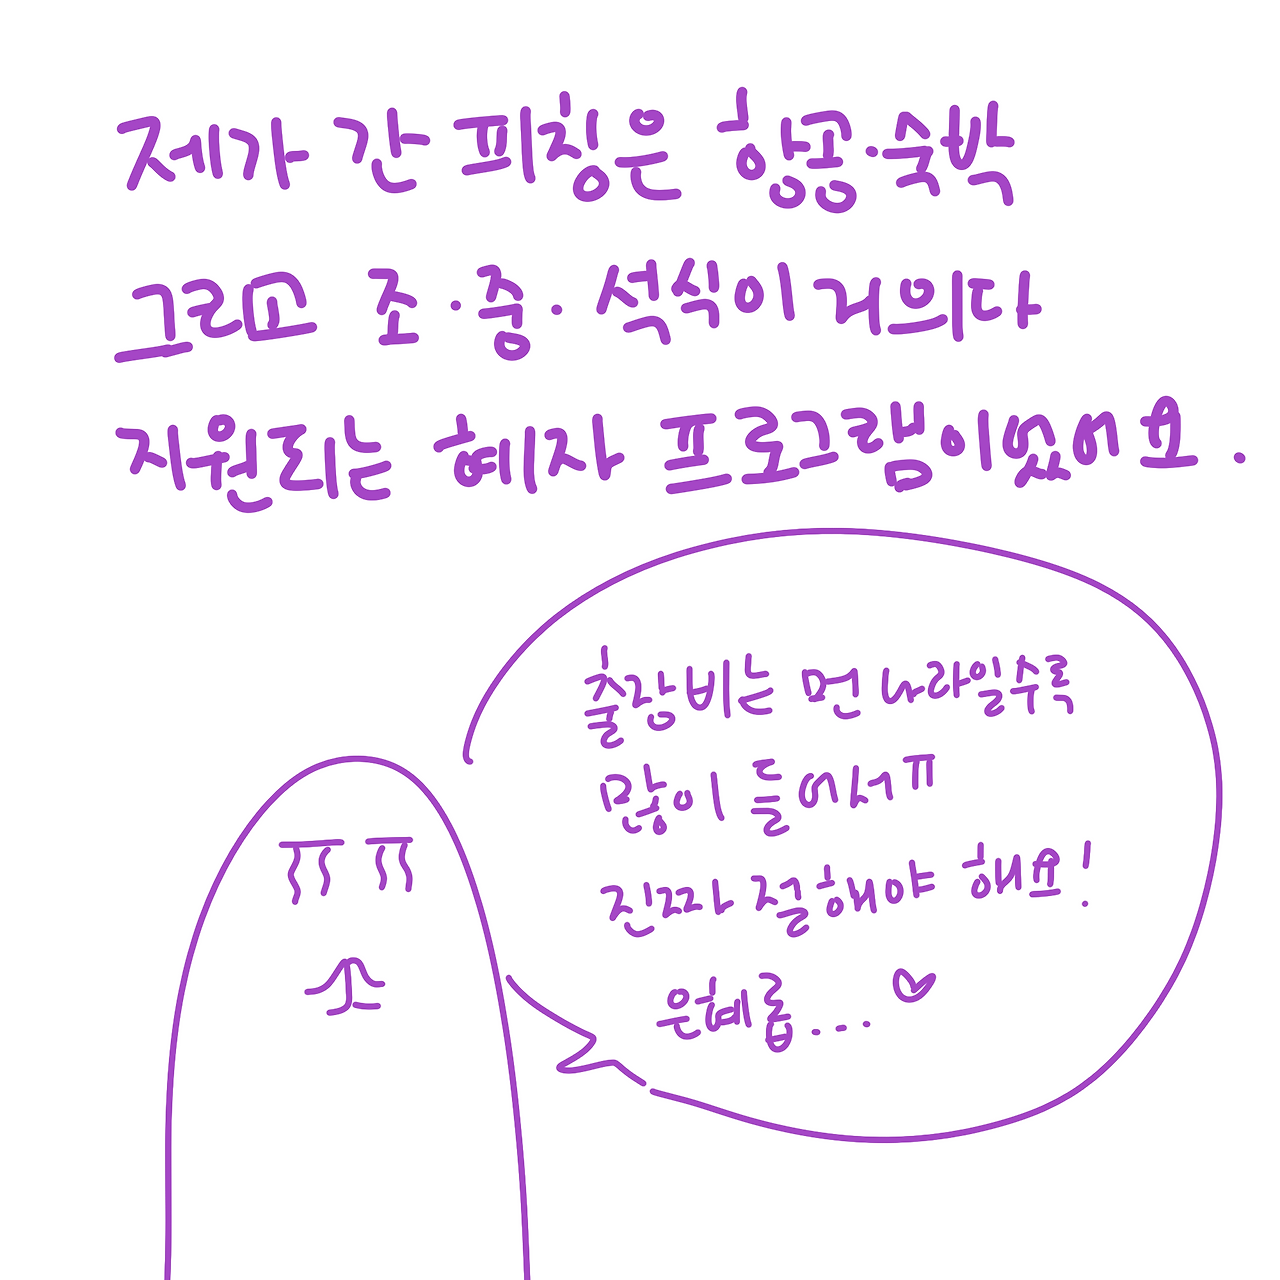 제가 간 피칭은 항공·숙박
그리고 조·중·석식이 거의다
지원되는 혜자 프로그램이었어요.
출장비는 먼 나라일수록
많이 들어서ㅠ
진짜 절해야 해요!
은혜롭... ♡